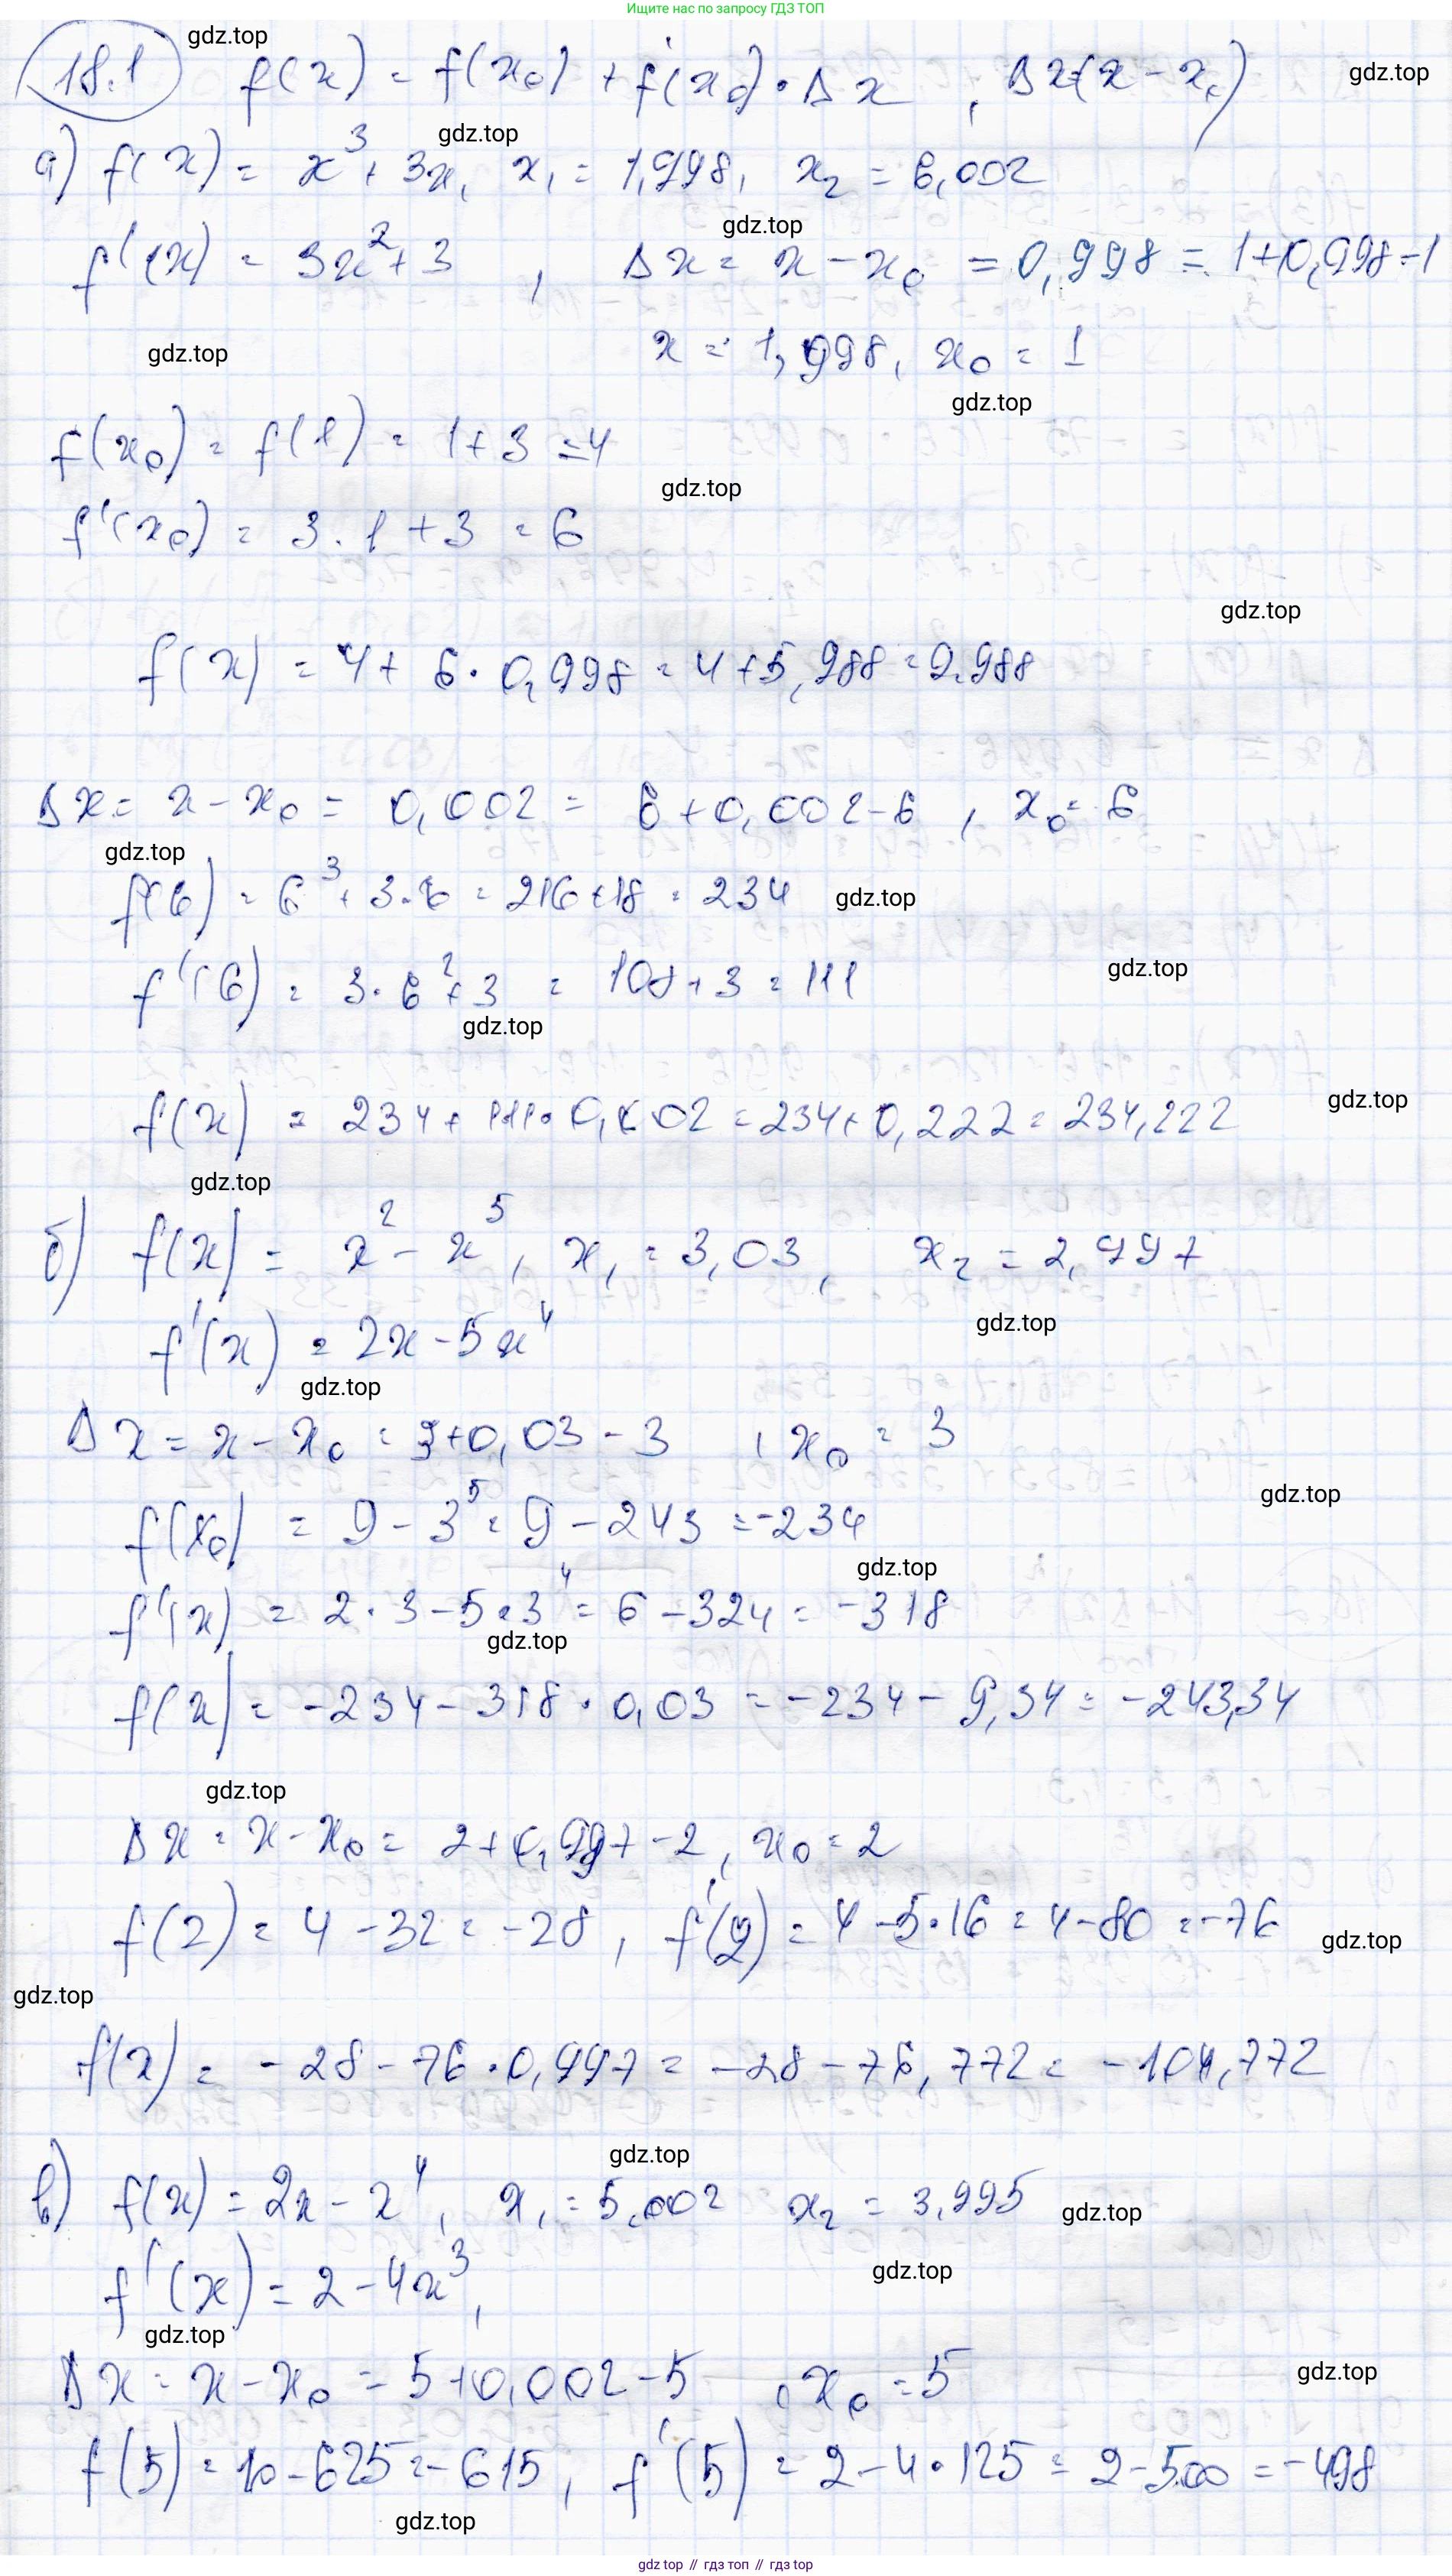 Ищите нас по запросу ГДЗ ТОП
gdz.top
18.1 f(x) = f(x₀) + f'(x₀)·Δx , Δx=(x - x₀)
gdz.top
gdz.top
а) f(x) = x³ + 3x, x₁ = 1,998, x₂ = 6,002
gdz.top
f'(x) = 3x² + 3 , Δx = x - x₀ = 0,998 = 1+0,998-1
gdz.top
x = 1,998, x₀ = 1
gdz.top
f(x₀) = f(1) = 1+3 = 4
gdz.top
f'(x₀) = 3·1+3 = 6
gdz.top
f(x) = 4 + 6·0,998 = 4+5,988 = 9.988
Δx = x - x₀ = 0,002 = 6+0,002-6 , x₀ = 6
gdz.top
f(6) = 6³ + 3·6 = 216+18 = 234
gdz.top
gdz.top
f'(6) = 3·6² + 3 = 108+3 = 111
gdz.top
gdz.top
f(x) = 234 + 111·0,002 = 234+0,222 = 234,222
gdz.top
б) f(x) = x² - x⁵, x₁ = 3,03, x₂ = 2,997
gdz.top
f'(x) = 2x - 5x⁴
gdz.top
Δx = x - x₀ = 3+0,03-3 , x₀ = 3
gdz.top
f(x₀) = 9 - 3⁵ = 9 - 243 = -234
gdz.top
f'(x) = 2·3-5·3⁴ = 6-324 = -318
gdz.top
f(x) = -234-318·0,03 = -234-9,34 = -243,34
gdz.top
Δx = x - x₀ = 2+0,997-2, x₀ = 2
f(2) = 4-32 = -28, f'(2) = 4-5·16 = 4-80 = -76
gdz.top
gdz.top
f(x) = -28-76·0,997 = -28-76,772 = -104,772
gdz.top
в) f(x) = 2x - x⁴, x₁ = 5,002 x₂ = 3,995
gdz.top
gdz.top
f'(x) = 2-4x³,
gdz.top
Δx = x - x₀ = 5+0,002-5 , x₀ = 5
gdz.top
f(5) = 10-625 = -615, f'(5) = 2-4·125 = 2-500 = -498
gdz.top
gdz top // гдз топ // gdz top